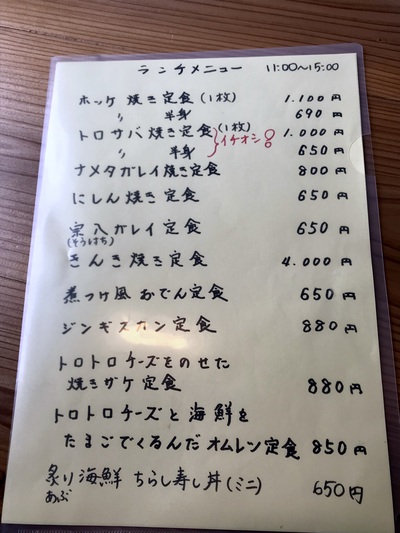 ランチメニュー 11:00〜15:00
ホッケ焼き定食(1枚) 1.100円
〃 半身 690円
トロサバ焼き定食(1枚) 1.000円
イチオシ!
〃 半身 650円
ナメタガレイ焼き定食 800円
にしん焼き定食 650円
宗八ガレイ定食 650円
(そうはち)
きんき焼き定食 4.000円
煮つけ風おでん定食 650円
ジンギスカン定食 880円
トロトロチーズをのせた
焼きザケ定食 880円
トロトロチーズと海鮮を
たまごでくるんだオムレン定食 850円
炙り海鮮 ちらし寿し丼(ミニ) 650円
あぶ